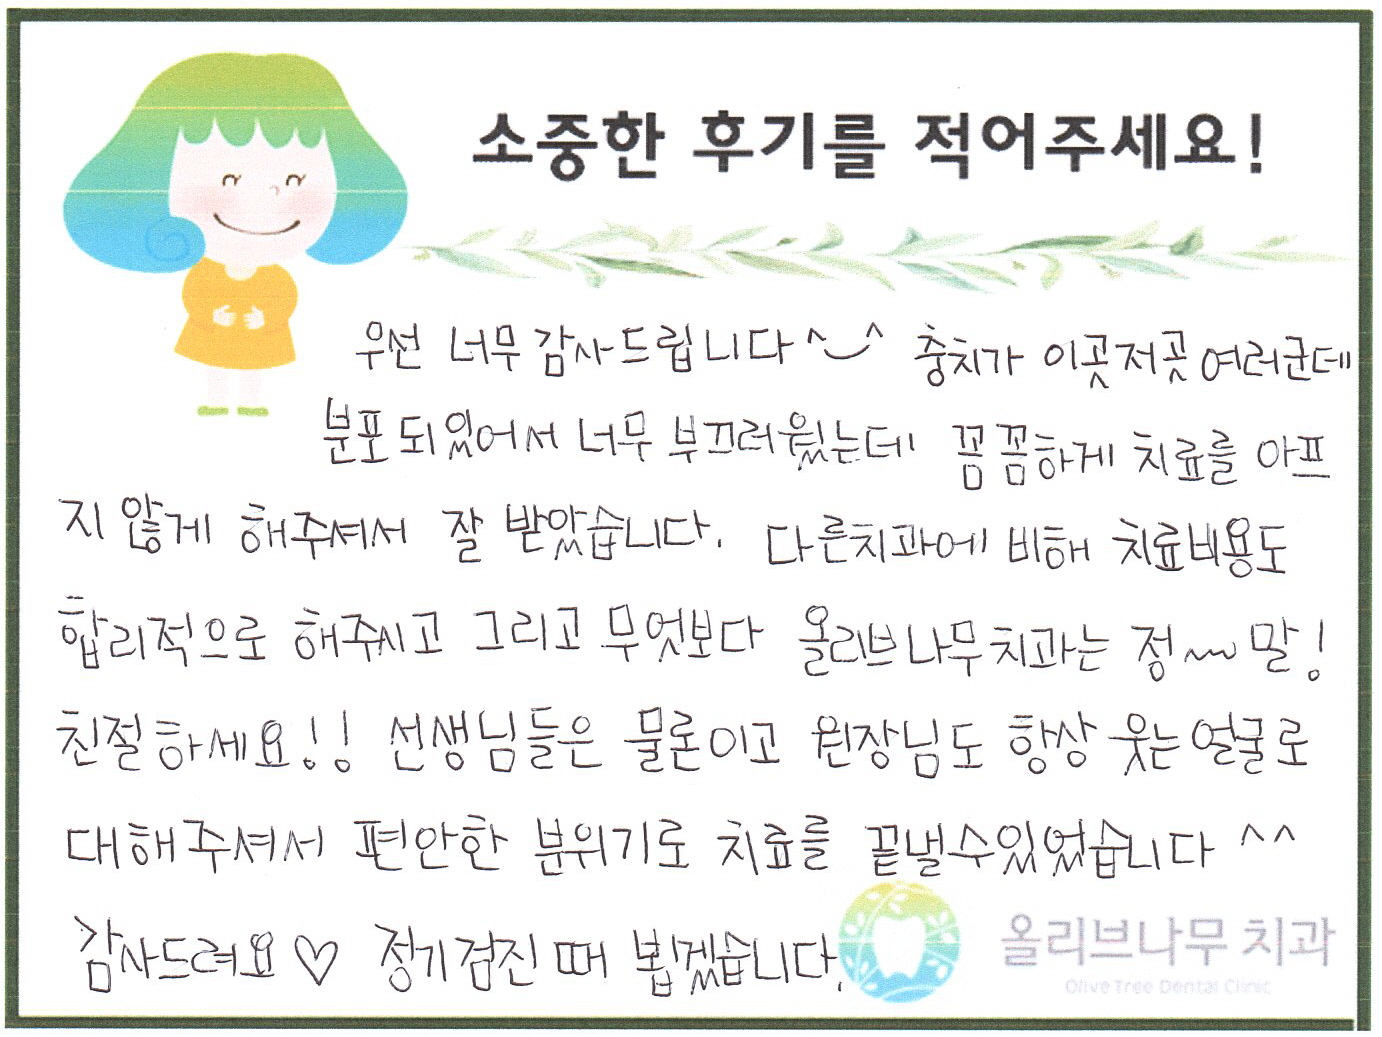 소중한 후기를 적어주세요!
우선 너무 감사드립니다^‿^ 충치가 이곳저곳 여러군데
분포되있어서 너무 부끄러웠는데 꼼꼼하게 치료를 아프
지 않게 해주셔서 잘 받았습니다. 다른치과에 비해 치료비용도
합리적으로 해주시고 그리고 무엇보다 올리브나무치과는 정~말!
친절하세요!! 선생님들은 물론이고 원장님도 항상 웃는얼굴로
대해주셔서 편안한 분위기로 치료를 끝낼수있었습니다 ^^
감사드려요♡ 정기검진때 뵙겠습니다.
올리브나무 치과
Olive Tree Dental Clinic